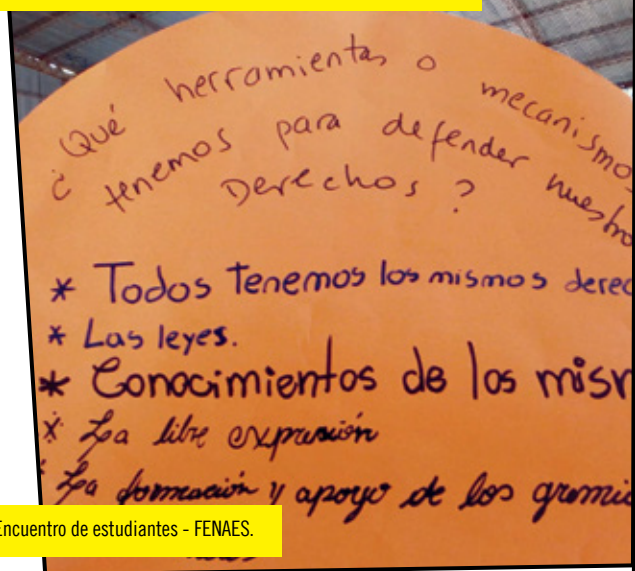 ¿Qué herramientas o mecanismos
tenemos para defender nuestro
Derechos?
* Todos Tenemos los mismos derec
* Las leyes.
* Conocimientos de los mism
* La libre expresión
* La formación y apoyo de los gremio
Encuentro de estudiantes - FENAES.